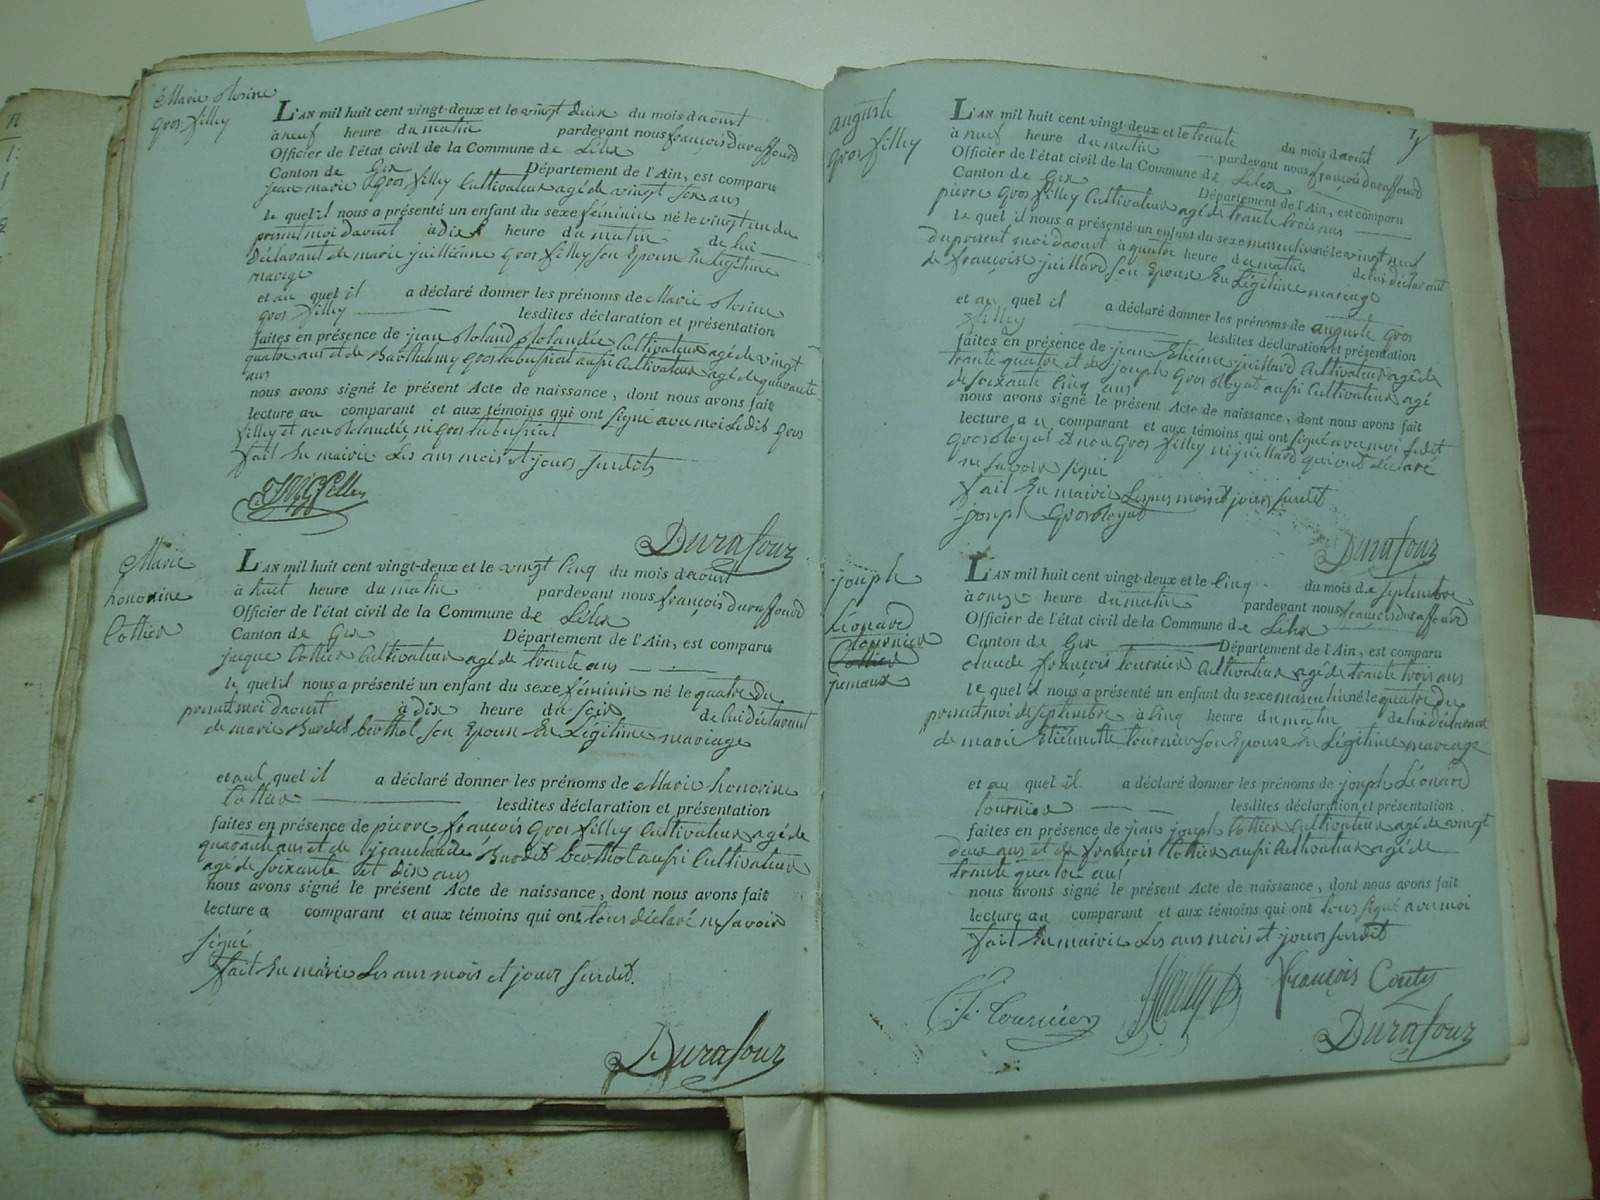 Marie Rosine
Gros-fillex
L'AN mil huit cent vingt-deux et le vingt deux du mois daoust
à neuf heure du matin pardevant nous françois duraffourd
Officier de l'état civil de la Commune de Lélex
Canton de Gex Département de l'Ain, est comparu
jean marie Gros filley Cultivateur agé de vingt six ans
le quel il nous a présenté un enfant du sexe féminin né le vingt un du
présent moi daoust à dix heure du matin de lui
Déclarant de marie juillienne Gros filley son Epouse En Légitime
mariage
et au quel il a déclaré donner les prénoms de Marie Rosine
gros filley lesdites déclaration et présentation
faites en présence de jean Roland Cultivateur agé de vingt
quatre ans et de Barthelemy gros aussi Cultivateur agé de quarante
ans
nous avons signé le présent Acte de naissance, dont nous avons fait
lecture au comparant et aux témoins qui ont signé avec moi Ledit Gros
filley et non ni gros
fait En mairie Les ans mois et jours surdits
Durafour
Marie
honorine
Cottier
L'AN mil huit cent vingt-deux et le vingt Cinq du mois daoust
à huit heure du matin pardevant nous françois duraffourd
Officier de l'état civil de la Commune de Lélex
Canton de Gex Département de l'Ain, est comparu
jacque Cottier Cultivateur agé de trante ans
le quel il nous a présenté un enfant du sexe féminin né le quatre du
présent moi daoust à dix heure du soir de lui déclarant
de marie Burdet berthot son Epouse En Légitime mariage
et au quel il a déclaré donner les prénoms de Marie honorine
Cottier lesdites déclaration et présentation
faites en présence de pierre françois Gros filley Cultivateur agé de
quarante ans et de jeanclaude Burdet berthot aussi Cultivateur
agé de soixante et dix ans
nous avons signé le présent Acte de naissance, dont nous avons fait
lecture a comparant et aux témoins qui ont tous déclaré ne savoir
signé
fait En mairie Les ans mois et jours surdit.
Durafour
7
auguste
gros filley
L'AN mil huit cent vingt-deux et le trante du mois daoust
à neuf heure du matin pardevant nous françois duraffourd
Officier de l'état civil de la Commune de Lélex
Canton de Gex Département de l'Ain, est comparu
pierre Gros filley Cultivateur agé de trante trois ans
le quel il nous a présenté un enfant du sexe masculin né le vingt neuf
du présent moi daoust à quatre heure du matin de lui déclarant
de françoise juillard son Epouse En Légitime mariage
et au quel il a déclaré donner les prénoms de auguste Gros
filley lesdites déclaration et présentation
faites en présence de jean Etiénne juillard Cultivateur agé de
trante quatre et de joseph Gros aussi Cultivateur agé
de soixante Cinq ans
nous avons signé le présent Acte de naissance, dont nous avons fait
lecture au comparant et aux témoins qui ont signé avec moi Ledit
et non Gros filley ni juillard qui ont déclaré
ne savoir signé
fait En mairie Les ans mois et jours surdit
joseph
Durafour
joseph
Léonard
tournier
Cottier
jumeaux
L'AN mil huit cent vingt-deux et le Cinq du mois de septembre
à onze heure du matin pardevant nous françois duraffourd
Officier de l'état civil de la Commune de Lélex
Canton de Gex Département de l'Ain, est comparu
claude françois tournier Cultivateur agé de trante trois ans
le quel il nous a présenté un enfant du sexe masculin né le quatre du
présent moi de septembre à Cinq heure du matin de lui déclarant
de marie Etiénnette tournier son Epouse En Légitime mariage
et au quel il a déclaré donner les prénoms de joseph Léonard
tournier lesdites déclaration et présentation
faites en présence de jean joseph Cottier Cultivateur agé de vingt
deux ans et de françois Cottier aussi Cultivateur agé de
trante quatre ans
nous avons signé le présent Acte de naissance, dont nous avons fait
lecture au comparant et aux témoins qui ont tous signé avec moi
fait En mairie Les ans mois et jours surdit
tournier
françois
Durafour